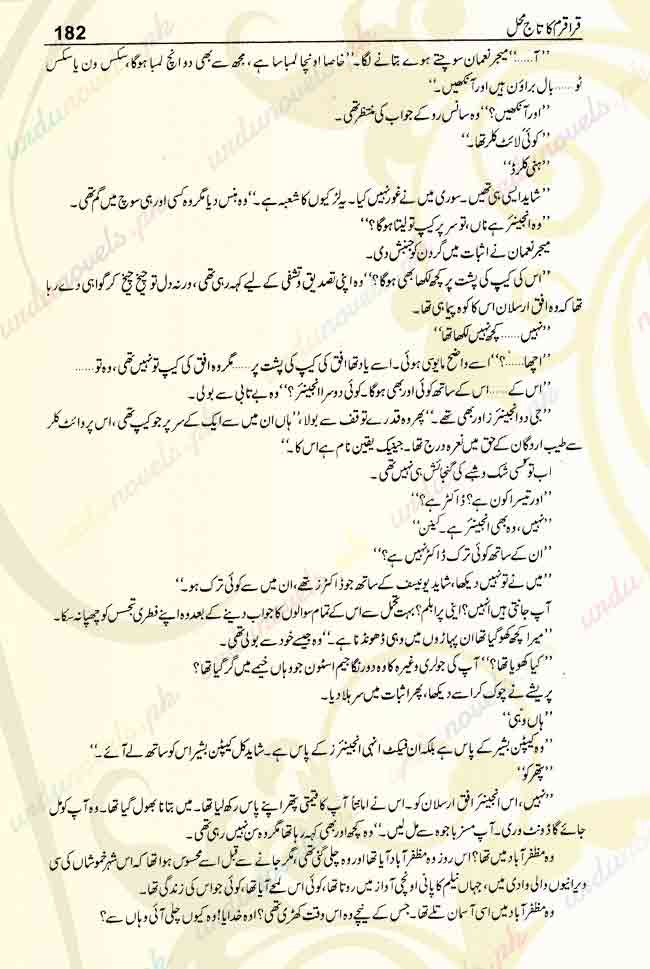 182
قراقرم کا تاج محل
”آ.....“میجر نعمان سوچتے ہوے بتانے لگا۔”خاصا اونچا لمبا سا ہے، مجھ سے بھی دو انچ لمبا ہوگا، سکس ون یا سکس
ٹو......بال براؤن ہیں اور آنکھیں۔“
”اور آنکھیں؟“وہ سانس روکے جواب کی منتظر تھی۔
”کوئی لائٹ کلر تھا۔“
”ہنی کلرڈ“
”شاید ایسی ہی تھیں۔ سوری میں نے غور نہیں کیا۔ یہ لڑکیوں کا شعبہ ہے۔“وہ ہنس دیا مگر وہ کسی اور ہی سوچ میں گم تھی۔
”وہ انجینئر ہے ناں، تو سر پر کیپ تو لیتا ہوگا؟“
میجر نعمان نے اثبات میں گردن کو جنبش دی۔
”اس کی کیپ کی پشت پر کچھ لکھا بھی ہوگا؟“وہ اپنی تصدیق و تشفی کے لیے کہہ رہی تھی، ورنہ دل تو چیخ چیخ کر گواہی دے رہا
تھا کہ وہ افق ارسلان اس کا کوہ پیما ہی تھا۔
”نہیں......کچھ نہیں لکھا تھا“
”اچھا.....؟“اسے واضح مایوسی ہوئی۔ اسے یاد تھا افق کی کیپ کی پشت پر......مگر وہ افق کی کیپ تو نہیں تھی، وہ تو......
”اس کے......اس کے ساتھ کوئی اور بھی ہوگا۔ کوئی دوسرا انجینئر؟“وہ بے تابی سے بولی۔
”جی دو انجینئرز اور بھی تھے۔“پھر وہ قدرے توقف سے بولا،”ہاں ان میں سے ایک کے سر پر جو کیپ تھی، اس پر وائٹ کلر
سے طیب اردگان کے حق میں نعرہ درج تھا۔ جینیک یقین نام ہے اس کا۔“
اب تو کسی شک و شبے کی گنجائش ہی نہیں تھی۔
”اور تیسرا کون ہے؟ ڈاکٹر ہے؟“
”نہیں، وہ بھی انجینئر ہے۔ کینن“
”ان کے ساتھ کوئی ترک ڈاکٹر نہیں ہے؟“
”میں نے تو نہیں دیکھا، شاید یونیسف کے ساتھ جو ڈاکٹرز تھے، ان میں سے کوئی ترک ہو۔“
آپ جانتی ہیں انہیں؟ اینی پرابلم؟ بہت تحمل سے اس کے تمام سوالوں کا جواب دینے کے بعد وہ اپنے فطری تجسس کو چھپا نہ سکا۔
”میرا کچھ کھو گیا تھا ان پہاڑوں میں وہی ڈھونڈنا ہے۔“وہ جیسے خود سے بولی تھی۔
”کیا کھویا تھا؟“ آپ کی جولری وغیرہ کا وہ دو رنگا جیم اسٹون جو وہاں خیمے میں گر گیا تھا؟
پریشے نے چونک کر اسے دیکھا، پھر اثبات میں سر ہلا دیا۔
”ہاں وہی“
”وہ کیپٹن بشیر کے پاس ہے بلکہ ان فیکٹ انہی انجینئرز کے پاس ہے۔ شاید کل کیپٹن بشیر اس کو ساتھ لے آئے۔“
”پتھر کو“
”نہیں، اس انجینئر افق ارسلان کو۔ اس نے امانتاً آپ کا قیمتی پتھر اپنے پاس رکھ لیا تھا۔ میں بتانا بھول گیا تھا۔ وہ آپ کو مل
جائے گا ڈونٹ وری۔ آپ مسز باجوہ سے مل لیں۔“وہ کچھ اور بھی کہہ رہا تھا مگر وہ سن نہیں رہی تھی۔
وہ مظفرآباد میں تھا؟ اس روز وہ مظفرآباد آیا تھا اور وہ چلی گئی تھی، مگر جانے سے قبل اسے محسوس ہوا تھا کہ اس شہر خموشاں کی سی
ویرانیوں والی وادی میں، جہاں نیلم کا پانی اونچی آواز میں روتا تھا، کوئی اس لمحے آیا تھا، کوئی جو اس کی زندگی تھا۔
وہ مظفرآباد میں اسی آسمان تلے تھا۔ جس کے نیچے وہ اس وقت کھڑی تھی؟ اوہ خدایا! وہ کیوں چلی آئی وہاں سے؟
urdunovels.pk